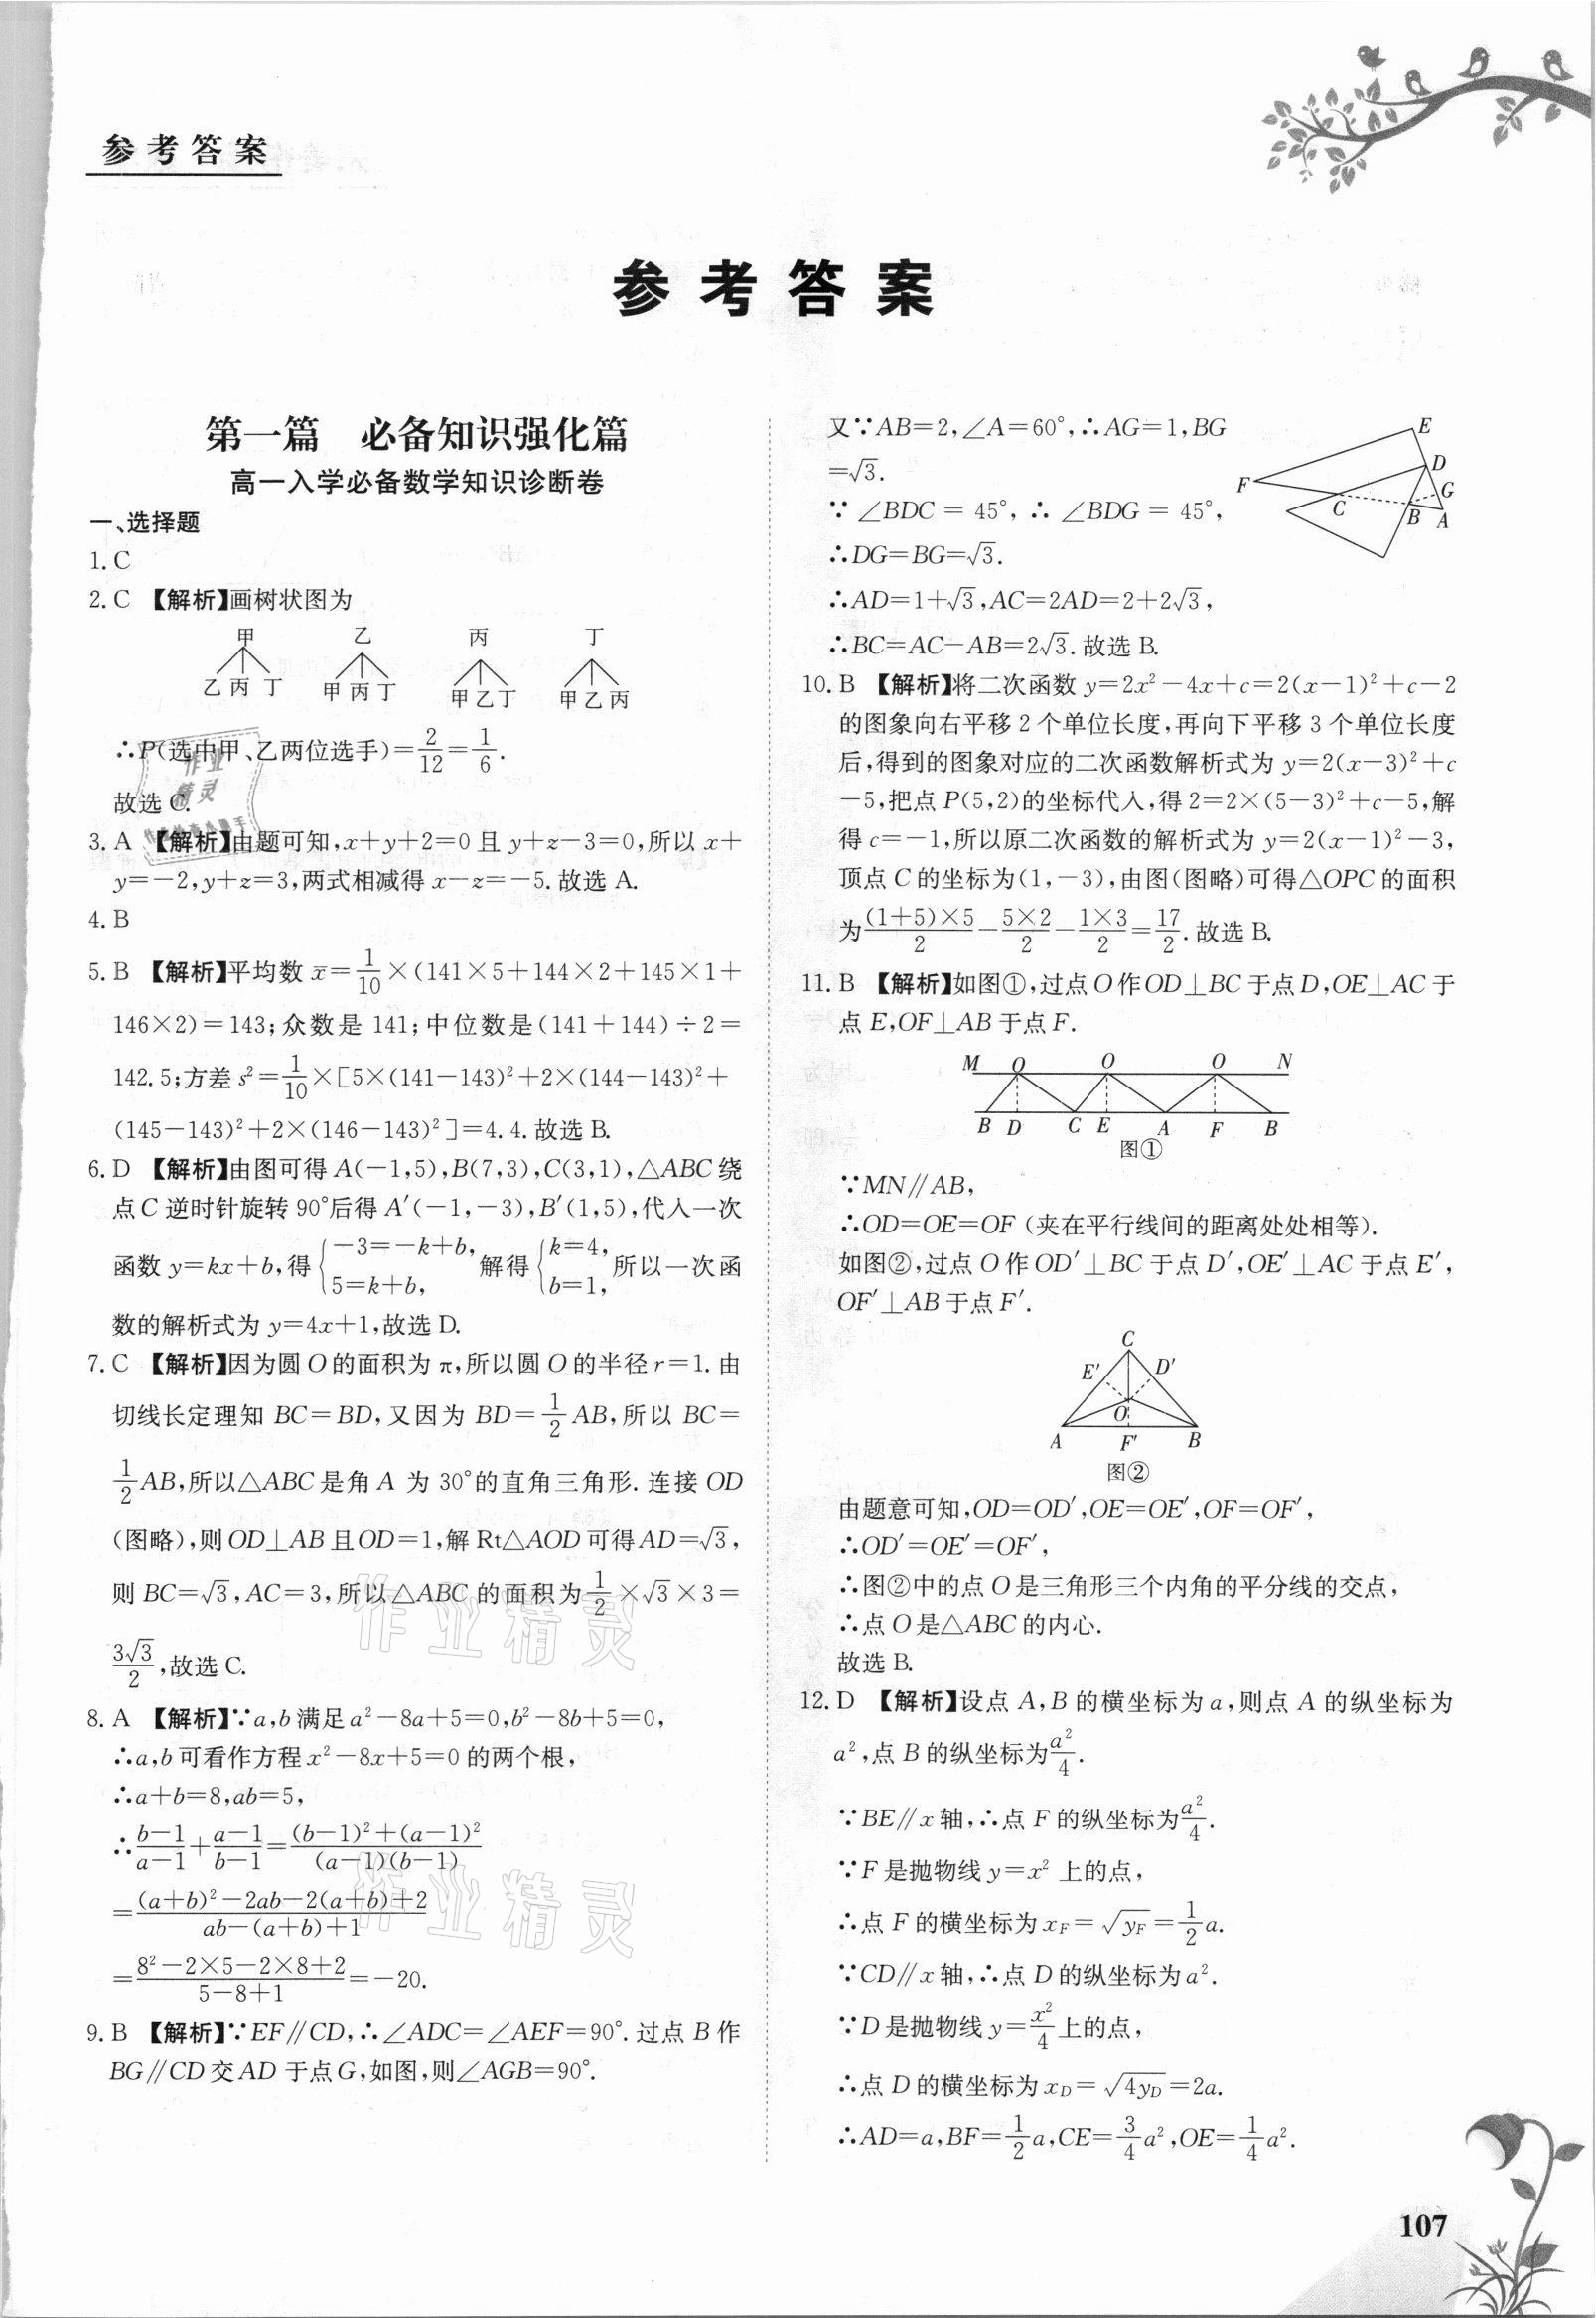 参考答案
参考答案
第一篇 必备知识强化篇
高一入学必备数学知识诊断卷
一、选择题
1. C
2. C 【解析】画树状图为
甲 乙 丙 丁
乙 丙 丁 甲 丙 丁 甲 乙 丁 甲 乙 丙
∴P(选中甲、乙两位选手)=2/12=1/6.
故选 C.
3. A 【解析】由题可知,x+y+2=0 且 y+z-3=0,所以 x+
y=-2,y+z=3,两式相减得 x-z=-5. 故选 A.
4. B
5. B 【解析】平均数 x̄=1/10×(141×5+144×2+145×1+
146×2)=143;众数是 141;中位数是(141+144)÷2=
142.5;方差 s²=1/10×[5×(141-143)²+2×(144-143)²+
(145-143)²+2×(146-143)²]=4.4. 故选 B.
6. D 【解析】由图可得 A(-1,5),B(7,3),C(3,1),△ABC 绕
点 C 逆时针旋转 90°后得 A′(-1,-3),B′(1,5),代入一次
函数 y=kx+b,得{-3=-k+b, 5=k+b, 解得{k=4, b=1, 所以一次函
数的解析式为 y=4x+1,故选 D.
7. C 【解析】因为圆 O 的面积为 π,所以圆 O 的半径 r=1. 由
切线长定理知 BC=BD,又因为 BD=1/2 AB,所以 BC=
1/2 AB,所以△ABC 是角 A 为 30°的直角三角形. 连接 OD
(图略),则 OD⊥AB 且 OD=1,解 Rt△AOD 可得 AD=√3,
则 BC=√3,AC=3,所以△ABC 的面积为 1/2×√3×3=
3√3/2,故选 C.
8. A 【解析】∵a,b 满足 a²-8a+5=0,b²-8b+5=0,
∴a,b 可看作方程 x²-8x+5=0 的两个根,
∴a+b=8,ab=5,
∴(b-1)/(a-1)+(a-1)/(b-1)=((b-1)²+(a-1)²)/((a-1)(b-1))
=((a+b)²-2ab-2(a+b)+2)/(ab-(a+b)+1)
=(8²-2×5-2×8+2)/(5-8+1)=-20.
9. B 【解析】∵EF∥CD,∴∠ADC=∠AEF=90°. 过点 B 作
BG∥CD 交 AD 于点 G,如图,则∠AGB=90°.
又∵AB=2,∠A=60°,∴AG=1,BG
=√3.
∵ ∠BDC = 45°, ∴ ∠BDG = 45°,
∴DG=BG=√3.
∴AD=1+√3,AC=2AD=2+2√3,
∴BC=AC-AB=2√3. 故选 B.
E
D
F
G
C
B A
10. B 【解析】将二次函数 y=2x²-4x+c=2(x-1)²+c-2
的图象向右平移 2 个单位长度,再向下平移 3 个单位长度
后,得到的图象对应的二次函数解析式为 y=2(x-3)²+c
-5,把点 P(5,2)的坐标代入,得 2=2×(5-3)²+c-5,解
得 c=-1,所以原二次函数的解析式为 y=2(x-1)²-3,
顶点 C 的坐标为(1,-3),由图(图略)可得△OPC 的面积
为(1+5)×5/2-5×2/2-1×3/2=17/2. 故选 B.
11. B 【解析】如图①,过点 O 作 OD⊥BC 于点 D,OE⊥AC 于
点 E,OF⊥AB 于点 F.
M O O O N
B D C E A F B
图①
∵MN∥AB,
∴OD=OE=OF (夹在平行线间的距离处处相等).
如图②,过点 O 作 OD′⊥BC 于点 D′,OE′⊥AC 于点 E′,
OF′⊥AB 于点 F′.
C
E′ D′
O
A F′ B
图②
由题意可知,OD=OD′,OE=OE′,OF=OF′,
∴OD′=OE′=OF′,
∴图②中的点 O 是三角形三个内角的平分线的交点,
∴点 O 是△ABC 的内心.
故选 B.
12. D 【解析】设点 A,B 的横坐标为 a,则点 A 的纵坐标为
a²,点 B 的纵坐标为 a²/4.
∵BE∥x 轴,∴点 F 的纵坐标为 a²/4.
∵F 是抛物线 y=x² 上的点,
∴点 F 的横坐标为 x_F=√y_F=1/2 a.
∵CD∥x 轴,∴点 D 的纵坐标为 a².
∵D 是抛物线 y=x²/4 上的点,
∴点 D 的横坐标为 x_D=√4y_D=2a.
∴AD=a,BF=1/2 a,CE=3/4 a²,OE=1/4 a².
107
作业精灵
作业精灵
作业
精灵